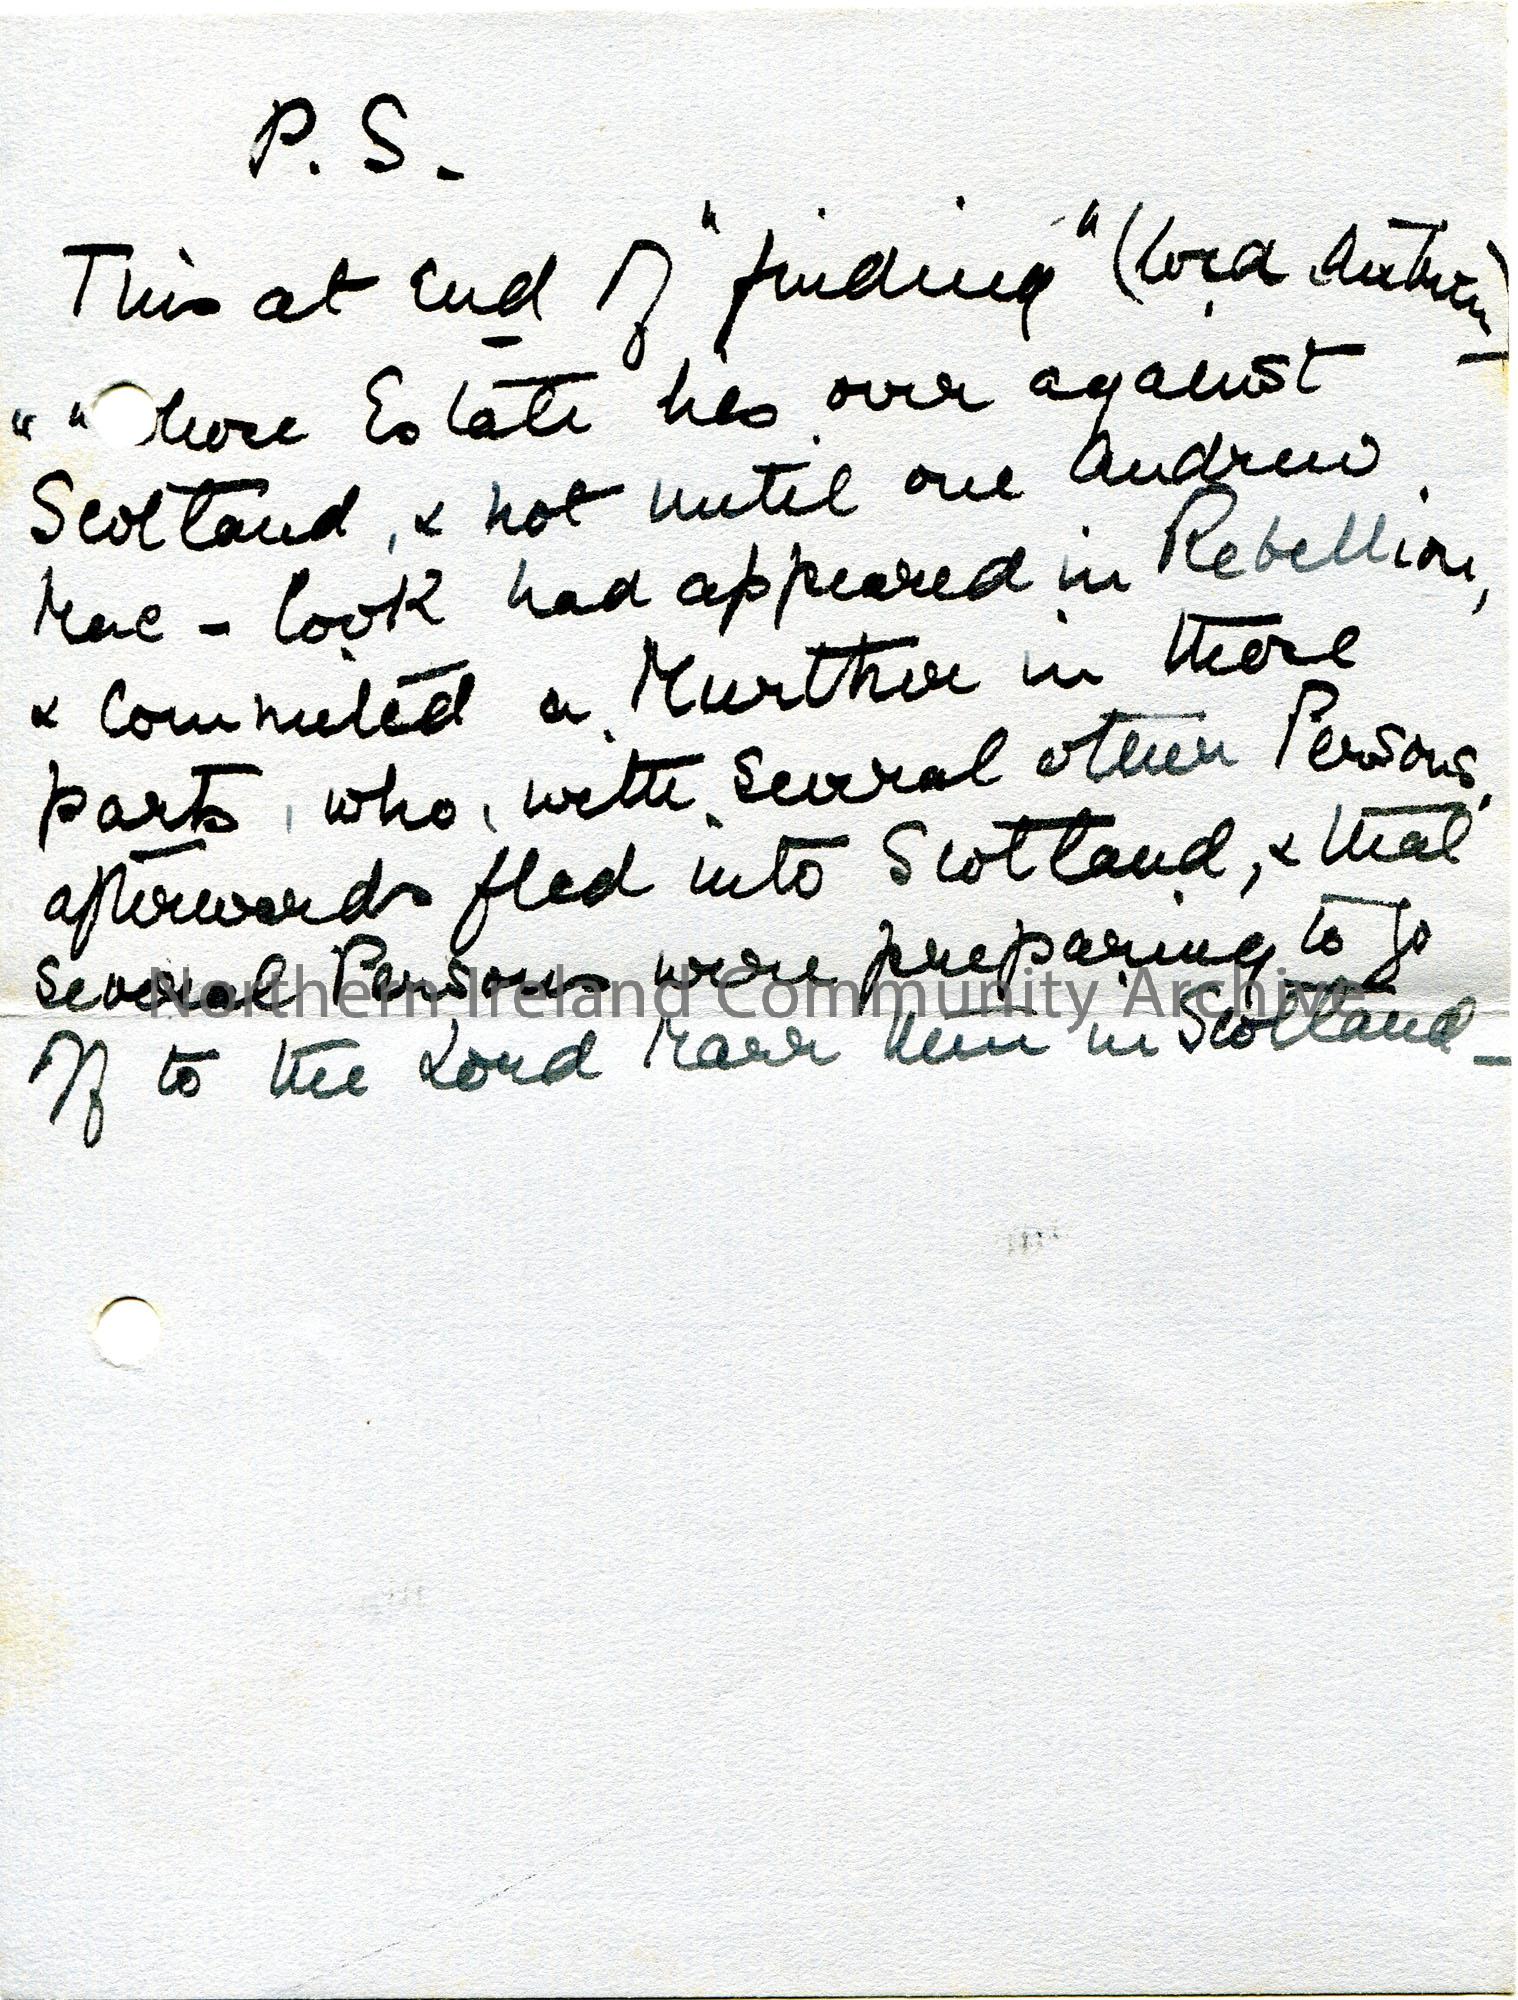 P.S.
This at End of "finding" (Lord Antrim)
" " whose Estate lies over against
Scotland, & not until one Andrew
Mac-look had appeared in Rebellion,
& Committed a Murther in those
parts, who, with several other Persons,
afterwards fled into Scotland, & that
several Persons were preparing to go
Off to the Lord Marr then in Scotland_
Northern Ireland Community Archive